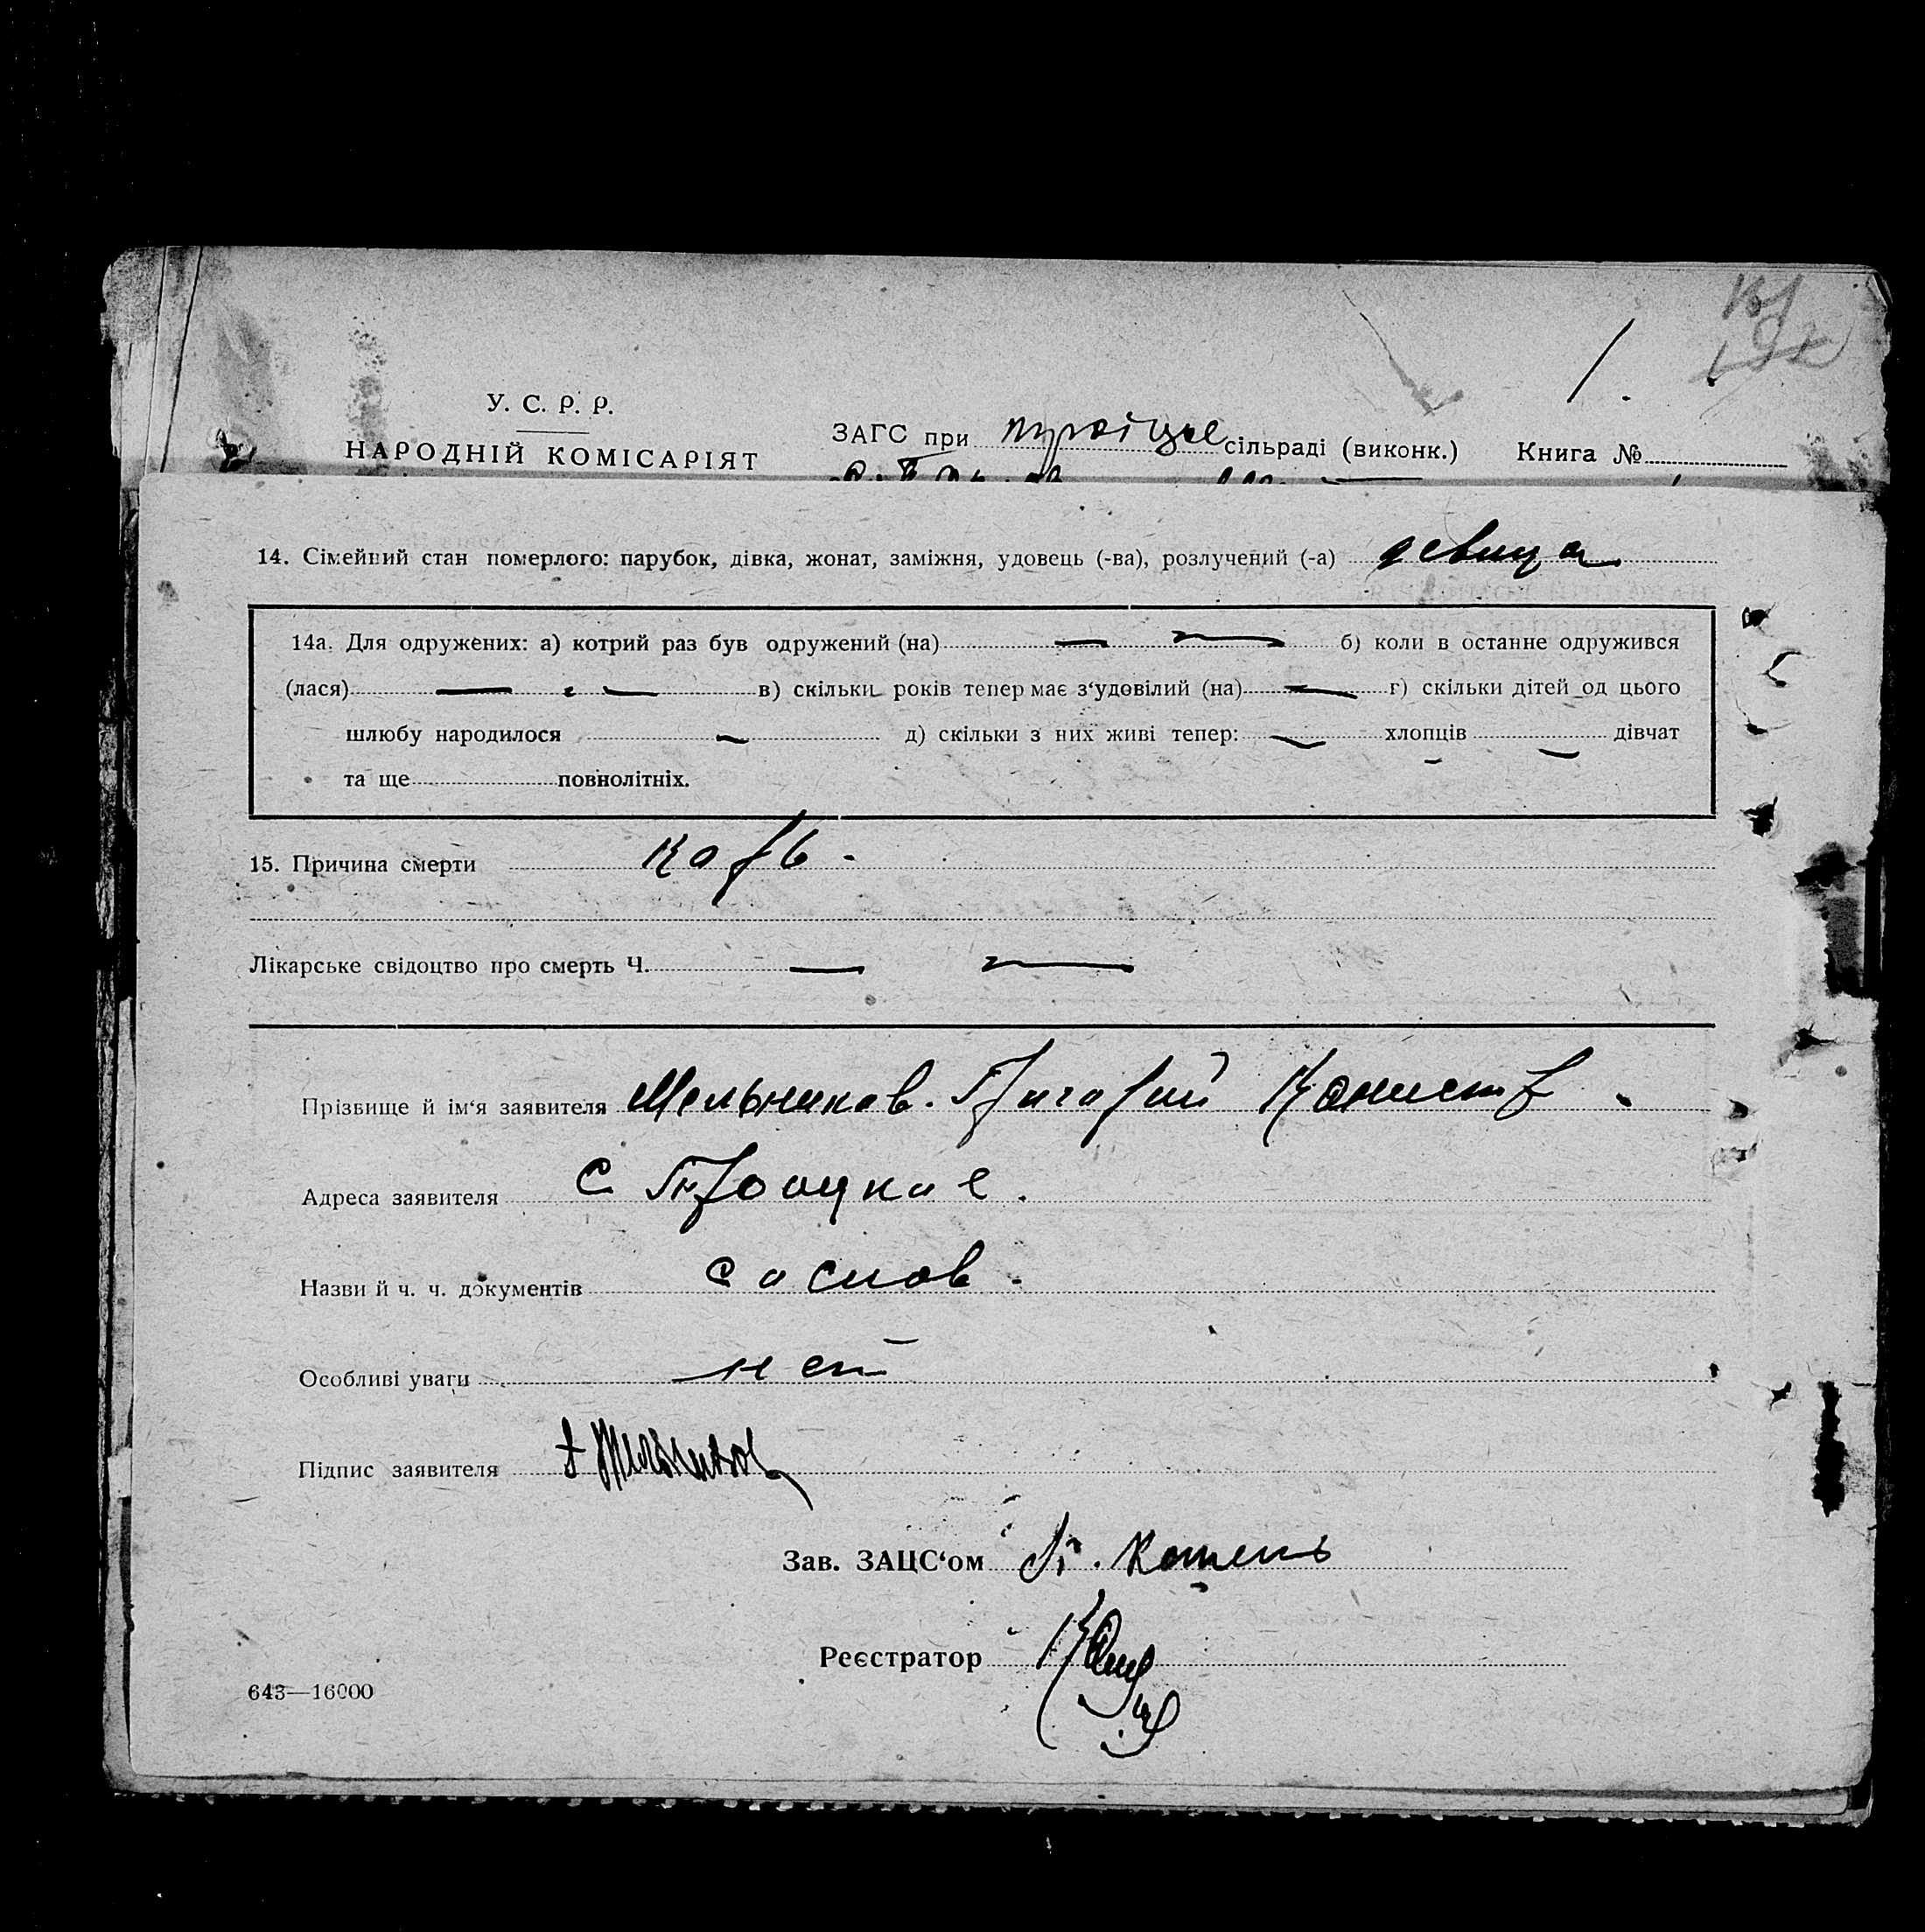 1.
У. С. Р. Р.
НАРОДНІЙ КОМІСАРІЯТ
ЗАГС при сільраді (виконк.) Книга №
14. Сімейний стан померлого: парубок, дівка, жонат, заміжня, удовець (-ва), розлучений (-а) девица
14а. Для одружених: а) котрий раз був одружений (на) — — б) коли в останне одружився
(лася) — — в) скільки років тепер має з'удовілий (на) — г) скільки дітей од цього
шлюбу народилося — д) скільки з них живі тепер: — хлопців — дівчат
та ще повнолітніх.
15. Причина смерти корь -
Лікарське свідоцтво про смерть Ч. — —
Прізвище й ім'я заявителя Мельников. Григорий
Адреса заявителя С Троицкое.
Назви й ч. ч. документів со слов.
Особливі уваги нет
Підпис заявителя Мельников
Зав. ЗАЦС'ом
Реєстратор
643—16000